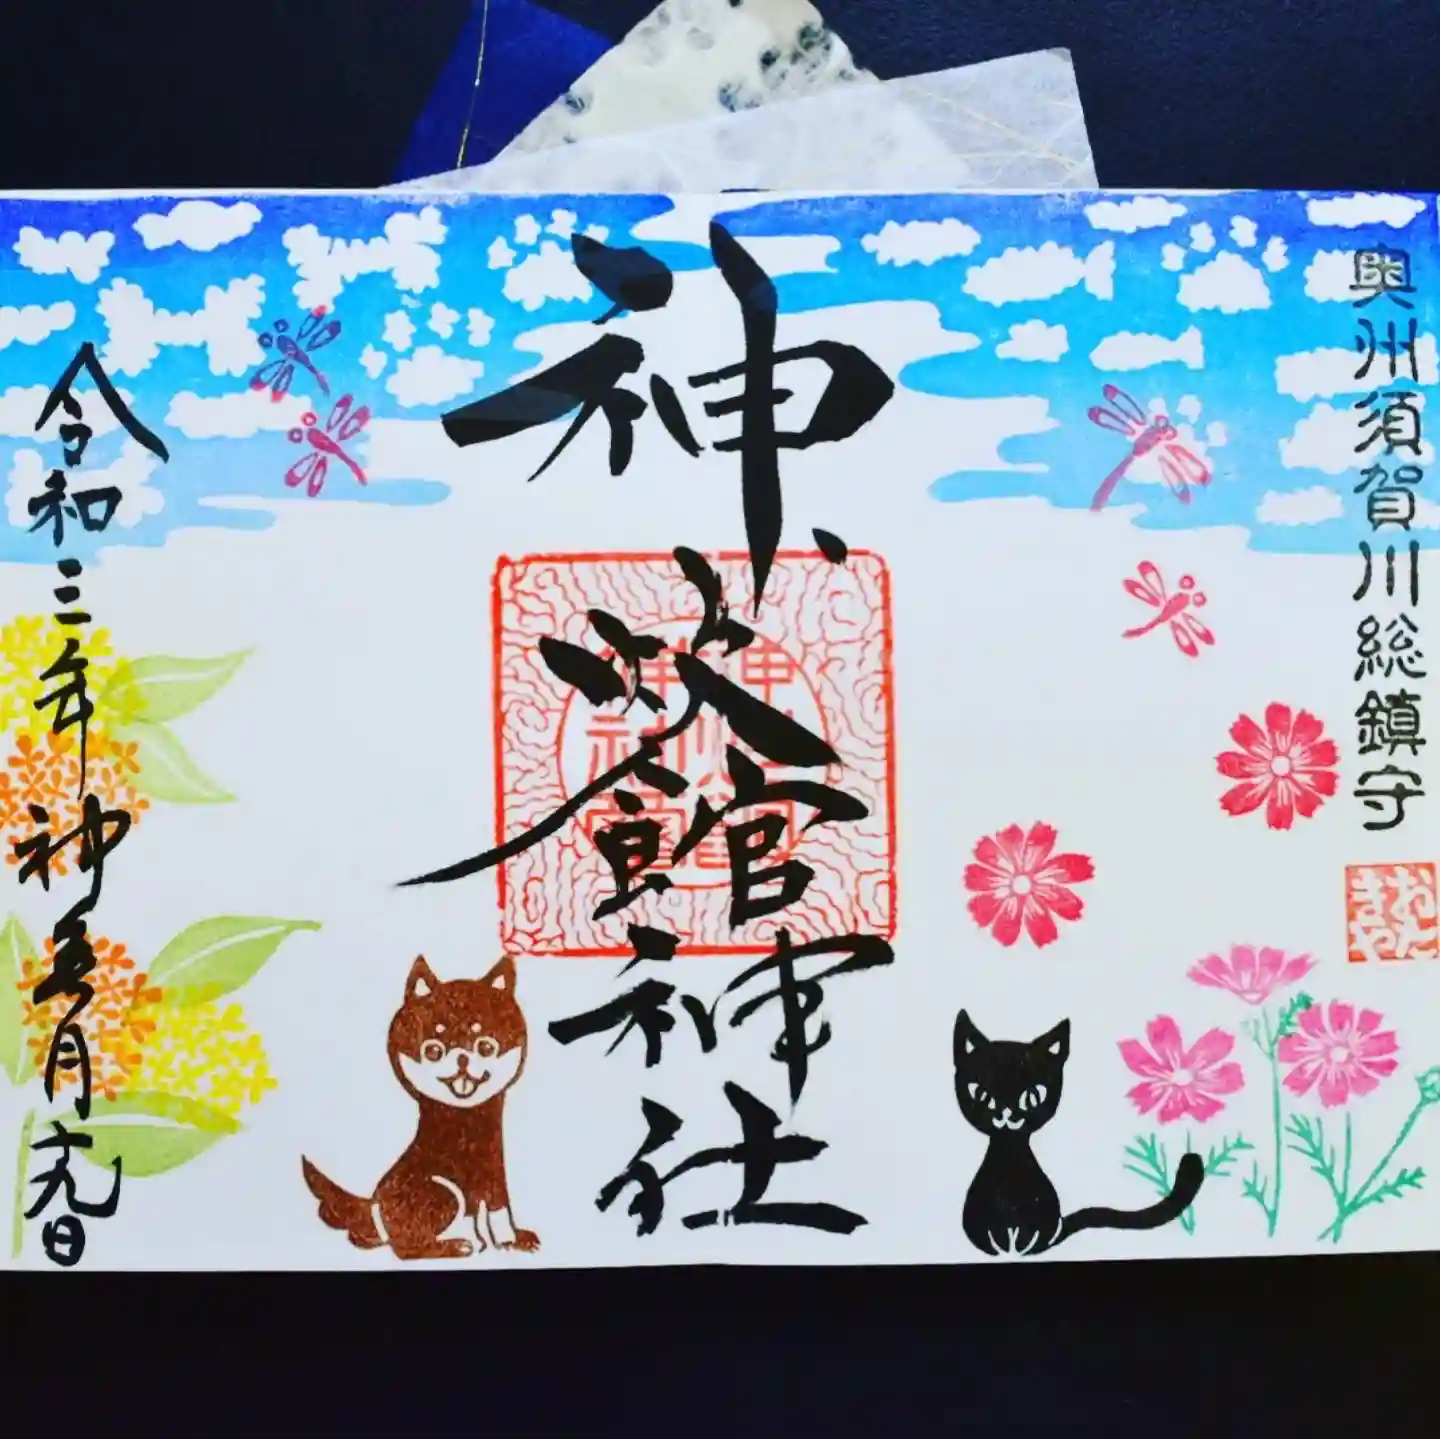 奥州須賀川総鎮守
おたきや
神炊館神社
令和三年神無月十九日